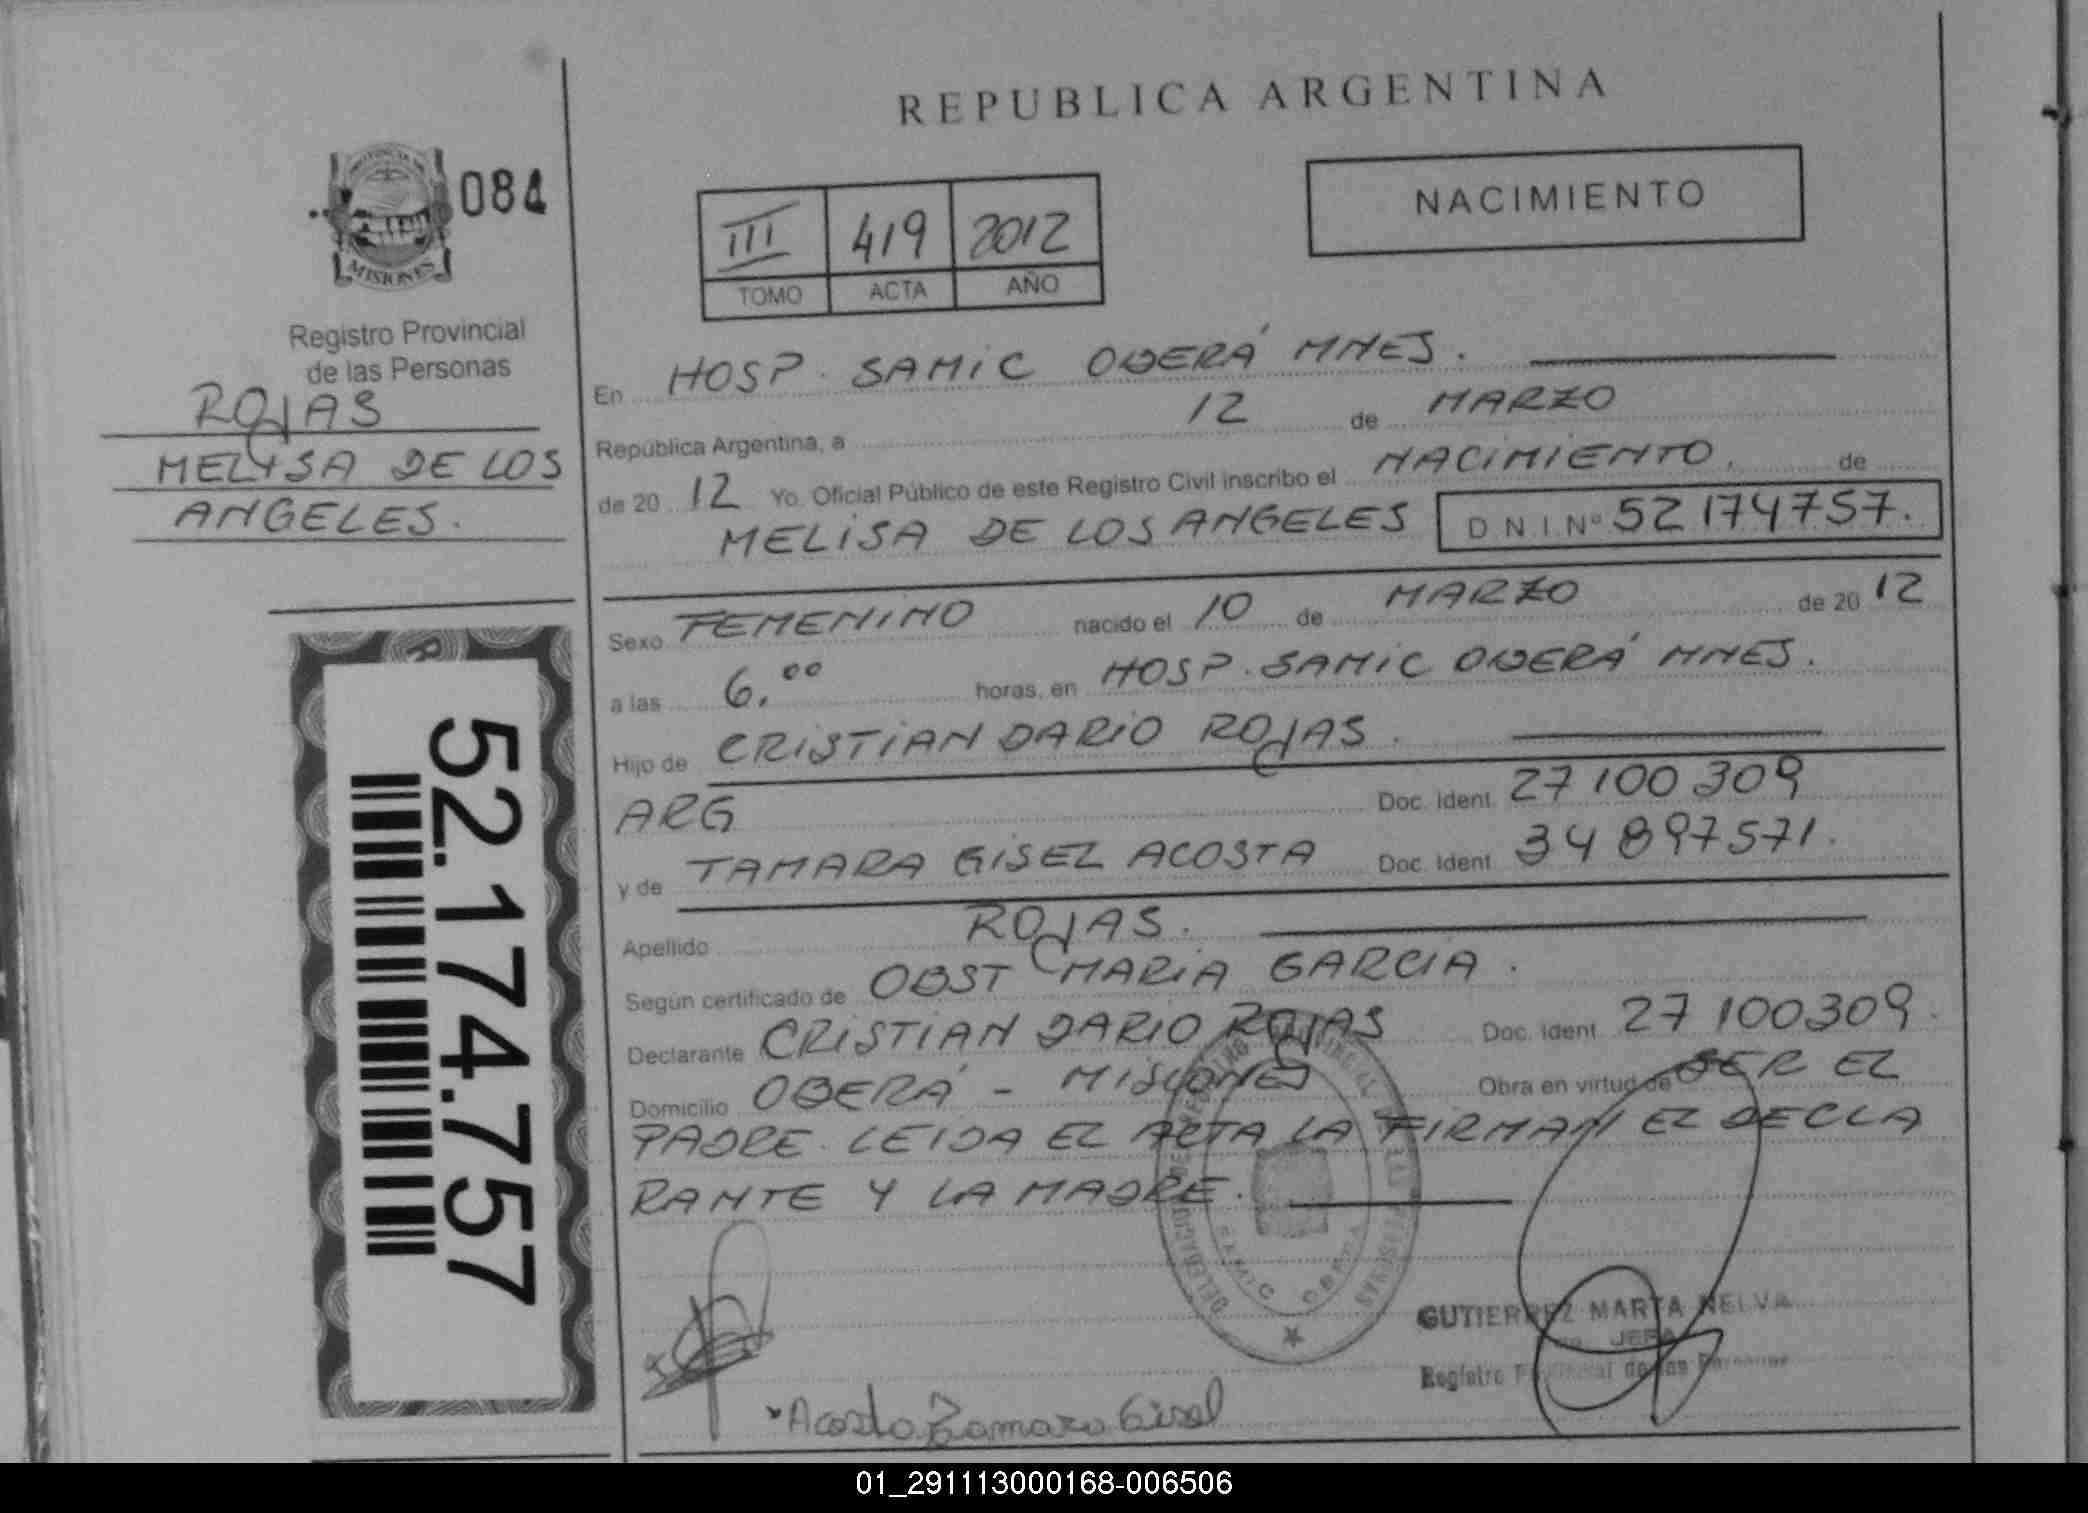 REPUBLICA ARGENTINA
084
MISIONES
Registro Provincial
de las Personas
ROJAS
MELISA DE LOS
ANGELES.
52.174.757
III 419 2012
TOMO ACTA AÑO
NACIMIENTO
En HOSP. SAMIC OBERÁ MNES.
República Argentina, a 12 de MARZO
de 20 12 Yo. Oficial Público de este Registro Civil inscribo el NACIMIENTO, de
MELISA DE LOS ANGELES D N.I.Nº 52174757.
Sexo FEMENINO nacido el 10 de MARZO de 20 12
a las 6.00 horas, en HOSP. SAMIC OBERÁ MNES.
Hijo de CRISTIAN DARIO ROJAS.
ARG Doc. Ident. 27 100 309
y de TAMARA GISEL ACOSTA Doc. Ident. 34 897571.
Apellido ROJAS.
Según certificado de OBST MARIA GARCIA.
Declarante CRISTIAN DARIO ROJAS Doc. Ident. 27 100309.
Domicilio OBERÁ - MISIONES Obra en virtud de SER EL
PADRE. LEIDA EL ACTA LA FIRMAN EL DECLA
RANTE Y LA MADRE.
SAMIC OBERA
GUTIERREZ MARTA NELVA
JEFA
Registro Provincial de las Personas
Acosta Tamara Gisel
01_291113000168-006506